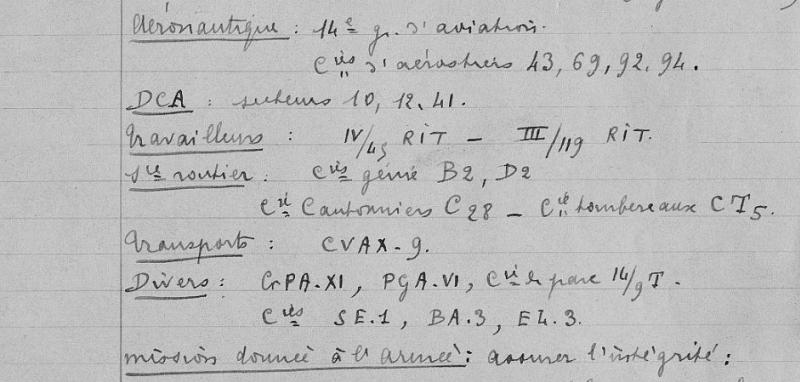 Aéronautique : 14e gr. d'aviation.
Cies d'aérostiers 43, 69, 92, 94.
DCA : secteurs 10, 12, 41.
Travailleurs : IV/45 RIT – III/119 RIT.
Sce routier : Cies génie B2, D2
Cie Cantonniers C28 – Cie tombereaux CT5.
Transports : CVAX-9.
Divers : GrPA.XI, PGA.VI, Cie de parc 14/9T.
Cies SE.1, BA.3, EL.3.
mission donnée à l'armée : assurer l'intégrité :